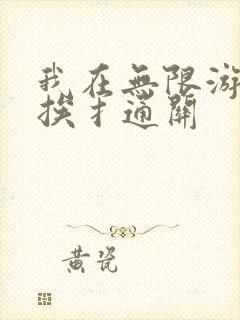 我在無限游
挨扌通關
黃瓷